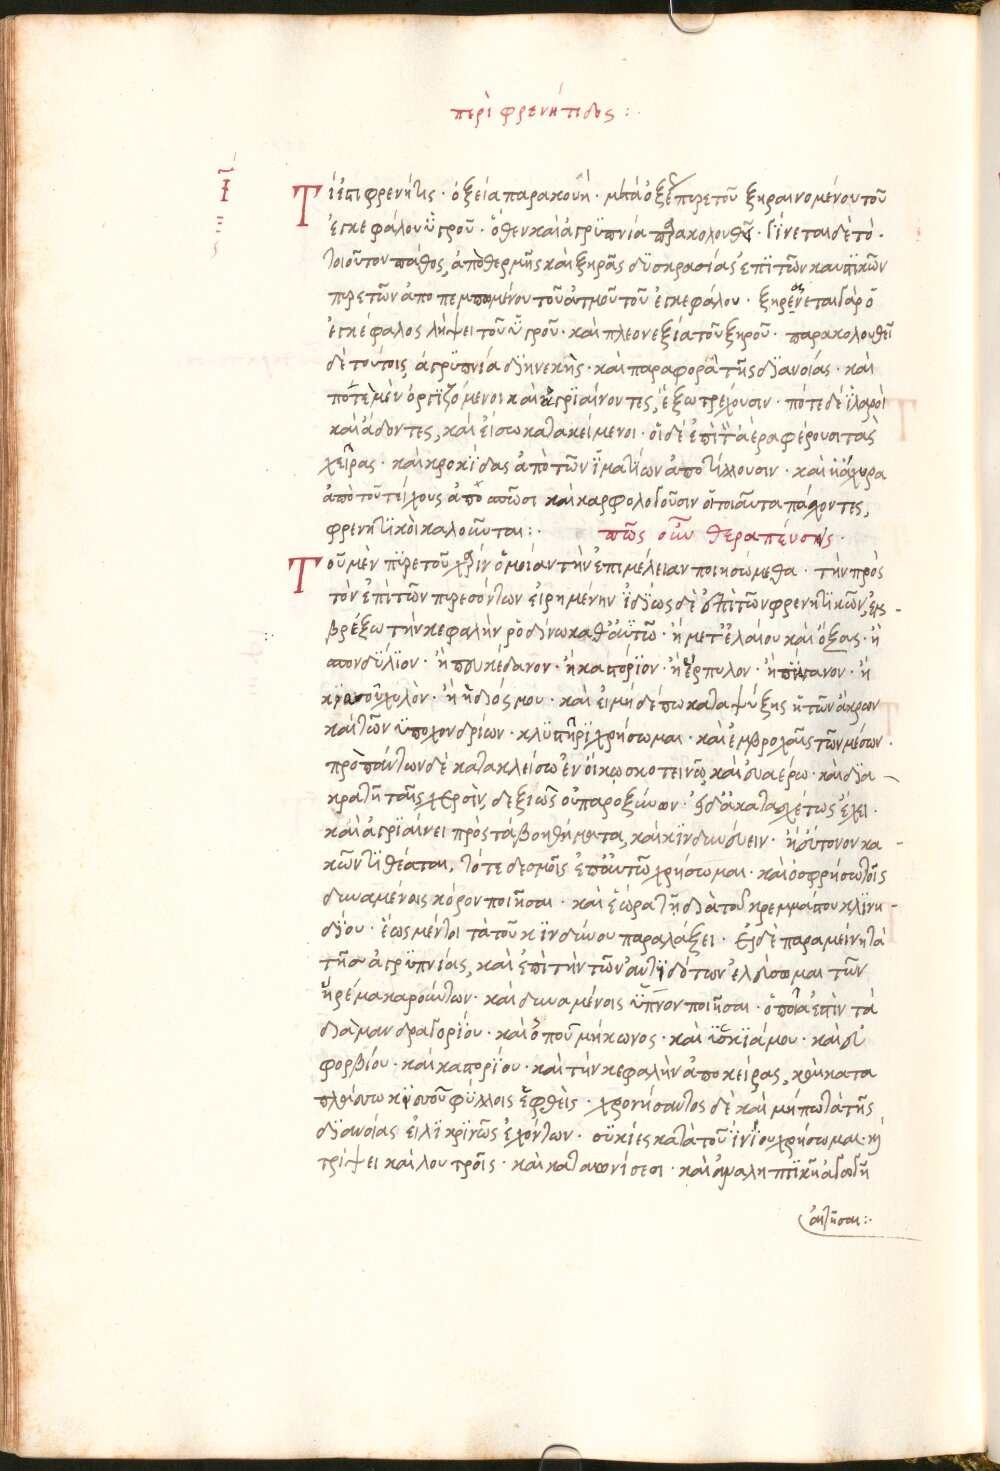 περὶ φρενήτιδος :
Τί ἐστι φρενῆτις · ὀξεῖα παρακοπὴ · μετὰ ὀξέ πυρετοῦ ξηραινομένου τοῦ
ἐγκεφάλου ὑγροῦ · ὅθεν καὶ ἀγρϋπνία παρακολουθεῖ · Γίνεται δὲ τὸ ·
τοιοῦτον πάθος, ἀπὸ θερμῆς καὶ ξηρᾶς δϋσκρασίας ἐπῒ τῶν καυστϊκῶν
πυρετῶν ἀποπεμπομένου τοῦ ἀτμοῦ τοῦ ἐγκεφάλου · ξηραίνεται γὰρ ὁ
ἐγκέφαλος λήψει τοῦ ὑγροῦ · καὶ πλεονεξία τοῦ ξηροῦ · παρακολουθεῖ
δὲ τούτοις ἀγρϋπνία διηνεκὴς · καὶ παραφορὰ τῆς διανοίας · καὶ
πότε μὲν ὀργϊζόμενοι καὶ ἀγριαίνοντες, ἔξω τρέχουσιν · πότε δὲ ἱλαροὶ
καὶ ἄδοντες, καὶ εἴσω κατακείμενοι · οἱ δὲ ἐπὶ τὸν ἀέρα φέρουσι τὰς
χεῖρας · καὶ κροκίδας ἀπὸ τῶν ἱματίων ἀποτίλλουσιν · καὶ ἄχυρα
ἀπὸ τοῦ τείχους ἀποσπῶσι καὶ καρφολογοῦσιν οἱ τοιαῦτα πάσχοντες,
φρενητϊκοὶ καλοῦνται : · πῶς οὖν θεραπεύσεις ·
Τοῦ μὲν πϋρετοῦ χάριν ὁμοίαν τὴν ἐπιμέλειαν ποιησώμεθα · τὴν πρὸς
τὸν ἐπὶ τῶν πυρεσόντων εἰρημένην ἰδίως δὲ ἐπὶ τῶν φρενητϊκῶν, ἐμ-
βρέξω τὴν κεφαλὴν ῥοδίνω καθ' αὑτῶ · ἢ μετ' ἐλαίου καὶ ὄξους · ἢ
σπονδϋλϊον · ἢ πευκέδανον · ἢ καστορϊον · ἢ ἕρπυλον · ἢ πήγανον · ἢ
κισσοῦ χυλὸν · ἢ ἡδυόσμου · καὶ εἰ μὴ δέπω καταψύξης ἢ τῶν ἄκρων
καὶ τῶν ὑποχονδρίων · κλϋστῆρϊ χρήσωμαι · καὶ ἐμβροχαῖς τῶν μέσων ·
πρὸ πάντων δὲ κατακλείσω ἐν οἴκω σκοτεινῶ, καὶ εὐαέρω · καὶ δια-
κρατῆ ταῖς χερσὶν, δεξιῶς οὐ παροξύνων · εἰ δ' ἀκατασχέτως ἔχει ·
καὶ ἀγριαίνει πρὸς τὰ βοηθήματα, καὶ κϊνδυνεύειν · ἢ εὔτονον κα-
κῶν τϊθέαται, τότε δεσμοῖς ἐπ' αὐτῶ χρήσωμαι · καὶ ὀσφρήσω τοῖς
δυναμένοις κόρον ποιῆσαι · καὶ ἑώρα τῆ διὰ τοῦ κρεμμάστου κλϊνη-
δίου · ἕως μέντοι τὰ τοῦ κϊνδύνου παραλάξει · Εἰ δὲ παραμείνη τὰ
τῆς ἀγρϋπνίας, καὶ ἐπὶ τὴν τῶν ἀντϊδότων ἐλεύσομαι τῶν
ἠρέμα καρούντων · καὶ δυναμένοις ὕπνον ποιῆσαι · ὁποῖα ἐστὶν τὰ
διὰ μανδραγορίου · καὶ ὀποῦ μήκωνος · καὶ ὑοσκϊάμου · καὶ εὐ
φορβίου · καὶ καστορίου · καὶ τὴν κεφαλὴν ἀποκείρας, καὶ κατα
πλάσσω κϊσσοῦ φϋλλοις ἑφθεὶς · χρονήσαντος δὲ καὶ μήπω τὰ τῆς
διανοίας εἰλϊκρϊνῶς ἐχόντων · σϋκίες κατὰ τοῦ ἰνίου χρήσωμαι · καὶ
τρίψει καὶ λουτροῖς · καὶ καταιονίσεσι · καὶ ἀναληπτϊκῆ ἀγωγῆ
αἰτῆσαι : ·